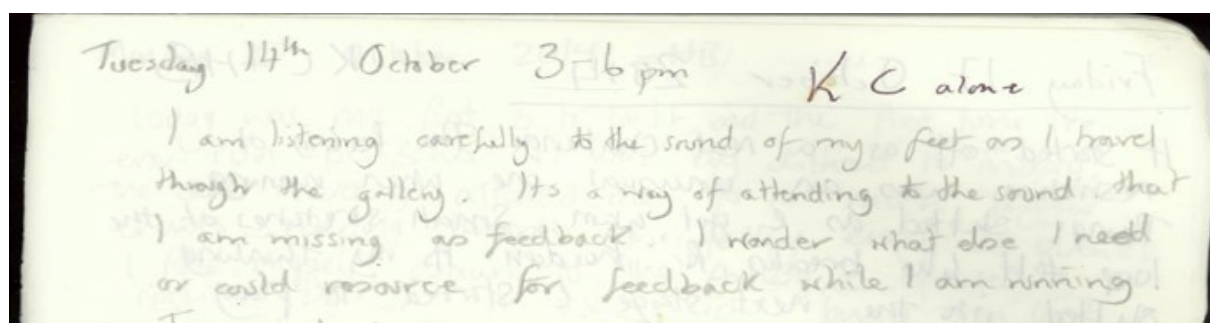 Tuesday 14th October 3-6 pm K C alone
I am listening carefully to the sound of my feet as I travel
through the gallery. Its a way of attending to the sound that
I am missing as feedback. I wonder what else I need
or could resource for feedback while I am running.